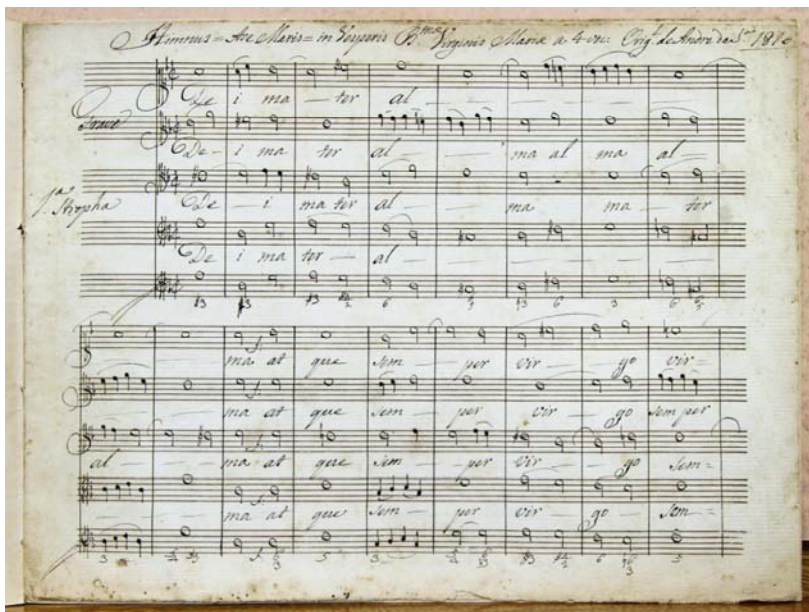 Himnus = Ave Maris = in Vesperis B.mae Virginis Maria a 4 voc. Orig.l de Andre da S.a 181
Grave
1.a Stropha
De i ma - ter al
De - i ma ter al ma al ma al -
De - i ma ter al - ma ma - ter
De i ma ter - al
#3 #3 6 #3 6 3 6
ma at que sem - per vir - go vir =
ma at que sem - per vir - go sem per
al - ma - at que sem - per vir - go sem =
ma at que sem - per vir - go - sem -
3 5 3 6 5